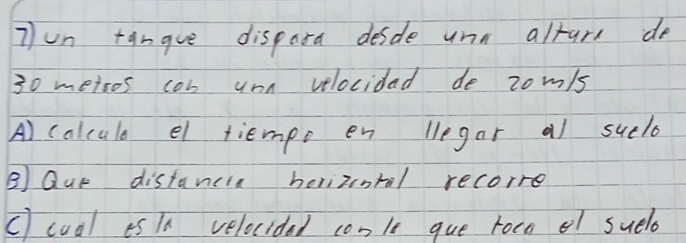 7) un tanque dispara desde una altura de
30 metros con una velocidad de 20 m/s
A) calcula el tiempo en llegar al suelo
B) Que distancia horizontal recorre
C) cual es la velocidad con la que toca el suelo